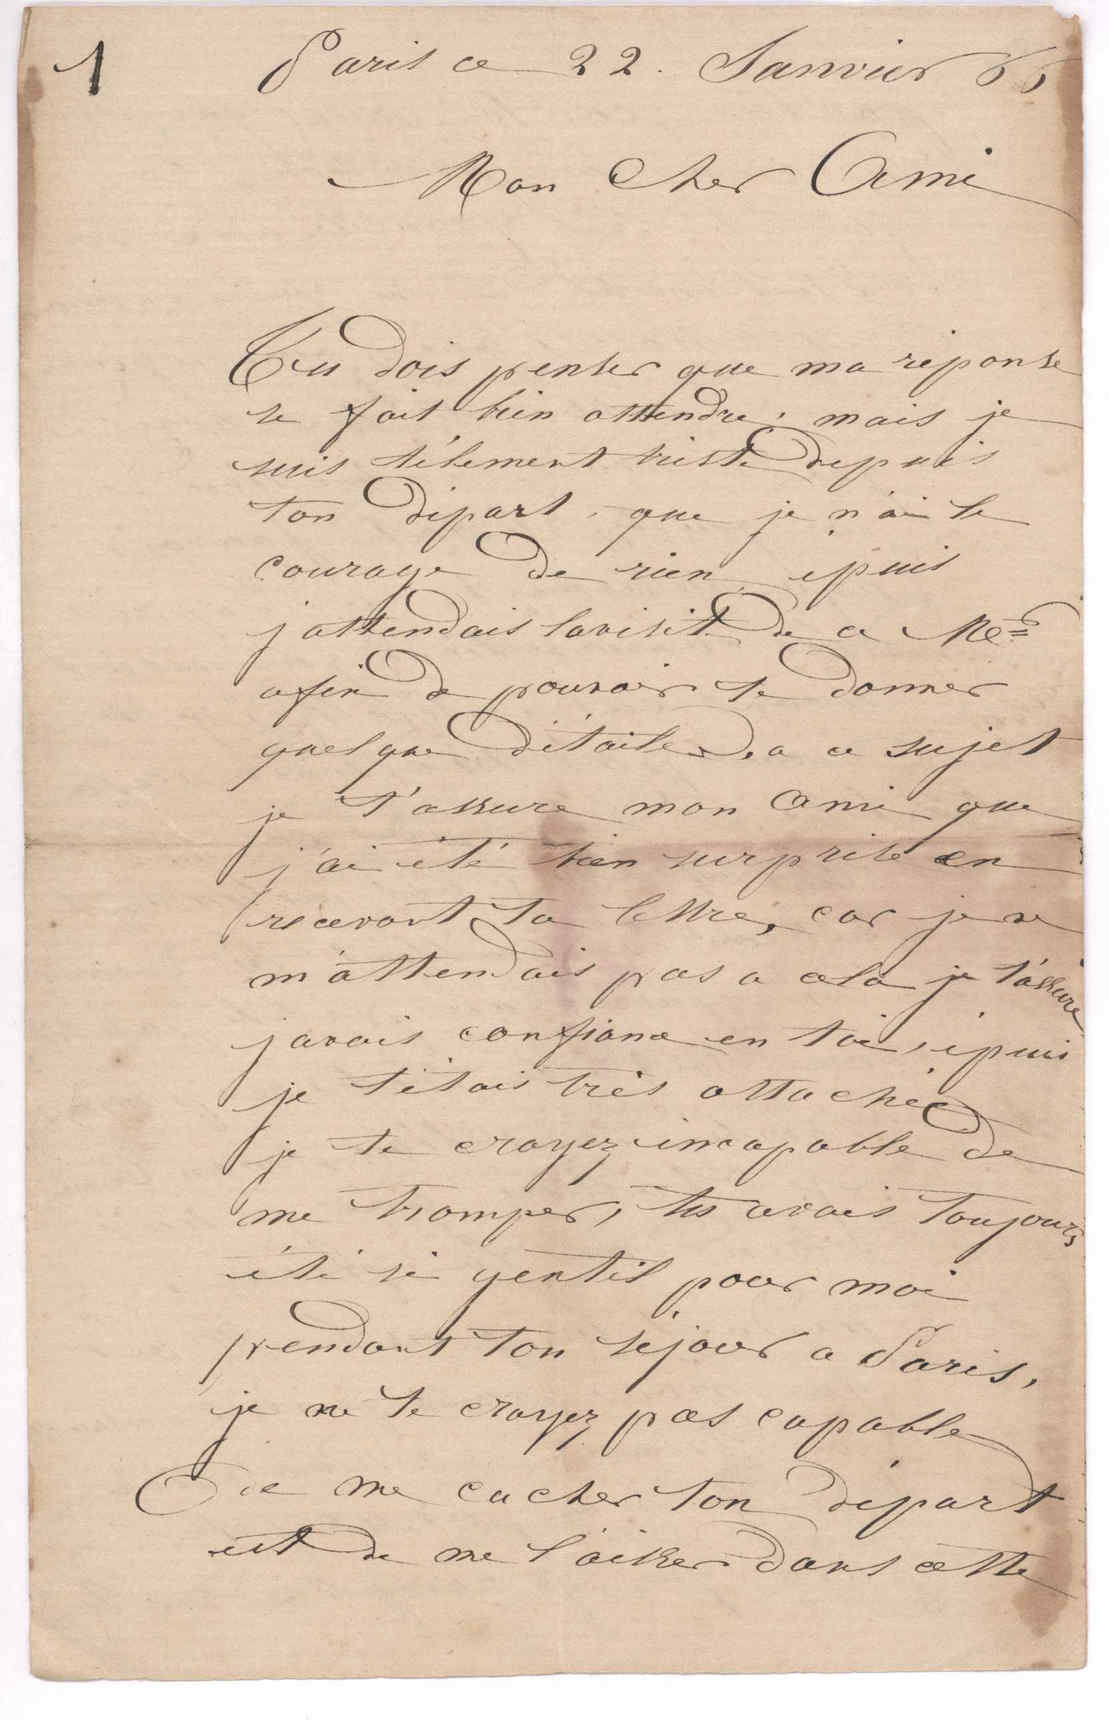 1
Paris ce 22. Janvier 66
Mon Cher Ami
Tu dois penser que ma réponse
se fait bien attendre, mais je
suis télement triste depuis
ton départ, que je n'ai le
courage de rien, épuis
j attendais la visite de a Mr
afin de pouvoir te donner
quelque détailes, a ce sujet
je t'assure mon ami que
j'ai été bien surprise en
recevant ta lettre, car je ne
m'attendais pas a cela je t'assure
javais confiance en toi, épuis
je t'étais très attachée
je te croyez incapable de
me tromper, tu avais toujours
été si gentil pour moi
pendant ton séjour a Paris,
je ne te croyez pas capable
de me cacher ton départ
et de me l'aisser dans cette